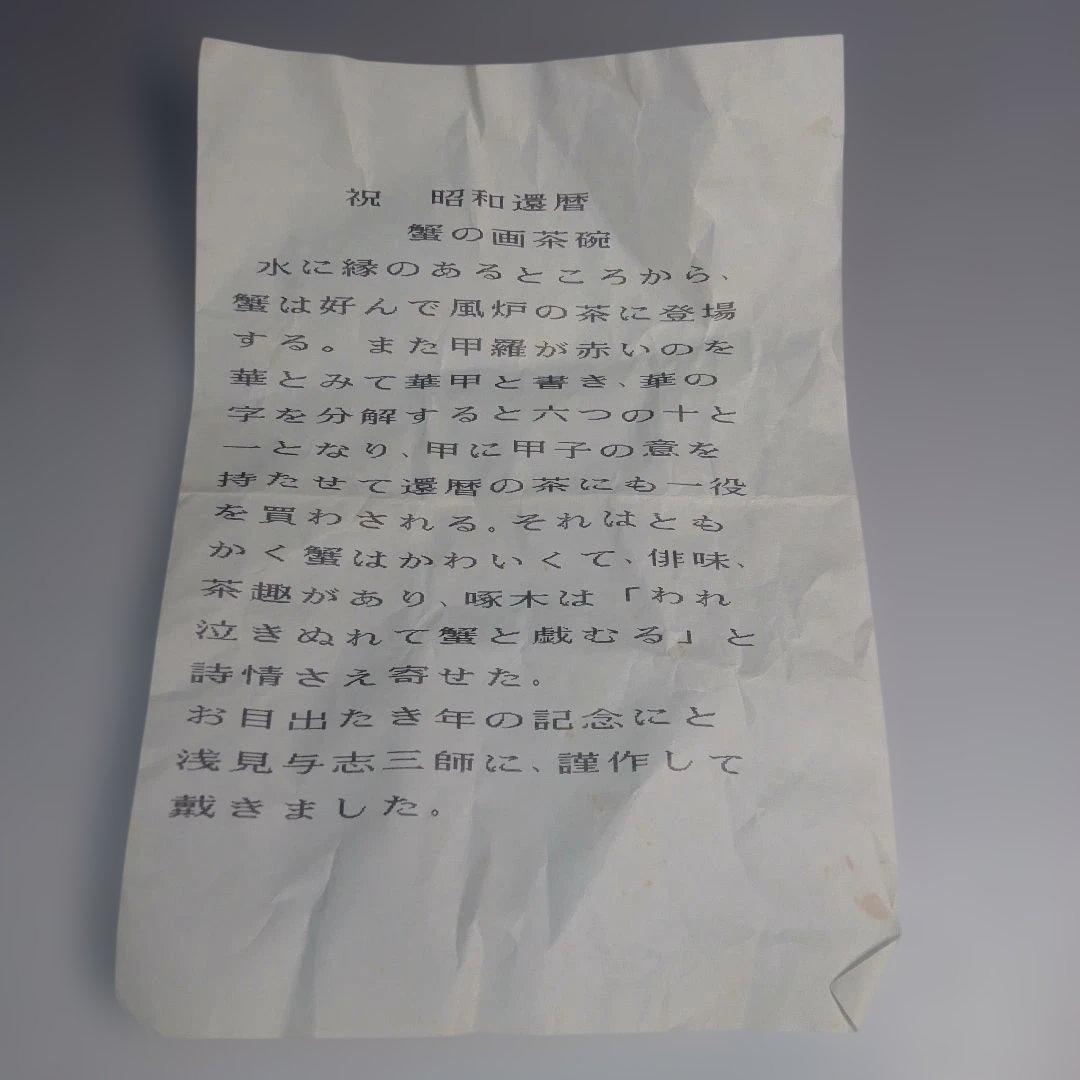 祝　昭和還暦
蟹の画茶碗
水に縁のあるところから、
蟹は好んで風炉の茶に登場
する。また甲羅が赤いのを
華とみて華甲と書き、華の
字を分解すると六つの十と
一となり、甲に甲子の意を
持たせて還暦の茶にも一役
を買わされる。それはとも
かく蟹はかわいくて、俳味、
茶趣があり、啄木は「われ
泣きぬれて蟹と戯むる」と
詩情さえ寄せた。
お目出たき年の記念にと
浅見与志三師に、謹作して
戴きました。